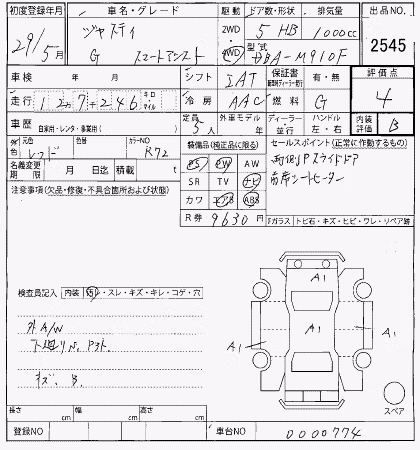 初度登録年月 車名・グレード 駆動 ドア数・形状 排気量 出品NO.
29年 5月 ジャスティ 2WD 5 HB 1000cc 2545
G スマートアシスト 4WD 型式 DBA-M910F
車検 年 月 シフト IAT 保証書 有・無 評価点
走行 127246 キロ マイル 冷房 AAC 燃料 G 4
車歴 自家用・レンタ・事業用( ) 定員 5人 外車モデル 年 ディーラー 並行 ハンドル 左・右 内装評価 B
外色 元色 レッド 色替 カラーNO R72 装備品(純正品に限る) セールスポイント(正常に作動するもの)
名義変更期限 月 日迄 積載 t PS PW AW 両側Pスライドドア
注意事項(欠品・修復・不具合箇所および状態) SR TV ナビ 前席シートヒーター
カワ エアB ABS
R券 9630円 Fガラス トビ石・キズ・ヒビ・ワレ・リペア跡
検査員記入 内装 汚・スレ・キズ・キレ・コゲ・穴
A1
外A/W
A1 A1 A1
キズ、B.
スペア
長さ cm 幅 cm 高さ cm
登録NO 車台NO 0000774